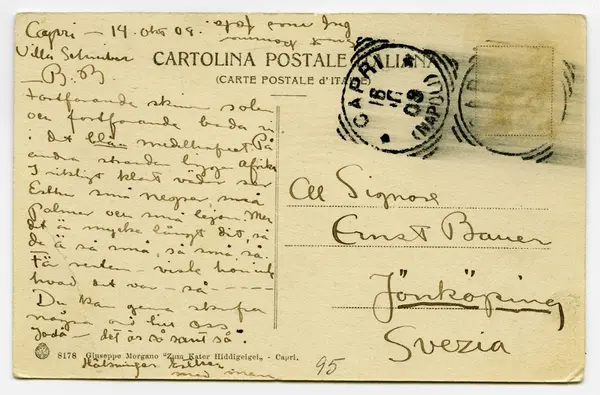 Capri – 14 okt 09.
Villa Schreiber
B. B
CARTOLINA POSTALE ITALIANA
(CARTE POSTALE d'ITALIE)
CAPRI
(NAPOLI)
16
09
Fortfarande skiner solen
och fortfarande bada vi
i det blåa medelhafvet. På
andra stranden ligga Afrika
I riktigt klart väder ser
Esther små negrer, små
palmer och små lejon. Men
det är mycke långt dit, så
de ä så små, så små, så.
hvad det var – så – – – –
Du kan gerna skrifva
några ord hit oss
Jada – det är så sant så".
Al Signore
Ernst Bauer
Jönköping
Svezia
8178 Giuseppe Morgano "Zum Kater Hiddigeigei" - Capri.
Hälsningar Esther
med man
95